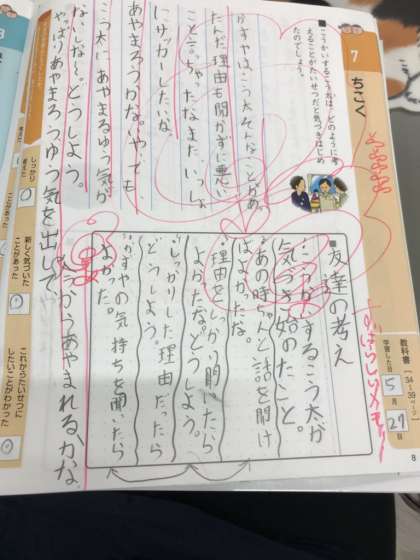 7
ちこく
■こうかいするこう太は、どのように考
えることがたいせつだと気づきはじめ
たのでしょう。
かずやはこう太そんなことがあっ
たんだ理由も聞かずに悪い
こと言っちゃったなまたいっしょ
にサッカーしたいな。
あやまろうかな。いや、でも
こう太にあやまるゆう気が
ないしな〜どうしよう。
やっぱりあやまろうゆう気を出して
だからあやまれるかな
教科書
34
39
ページ
学習した日
5月27日
すばらしいメモリー
■友達の考え
こうかいするこう太が
気づき始めたこと。
あの時ちゃんと話を聞け
ばよかったな。
理由をしっかり聞いたら
よかったな。どうしよう。
しっかりした理由だったら
どうしよう。
かずやの気持ちを聞いたら
よかった。
しっかり
考えた
新しく気づいた
ことがあった
これからたいせつに
したいことがわかった
8